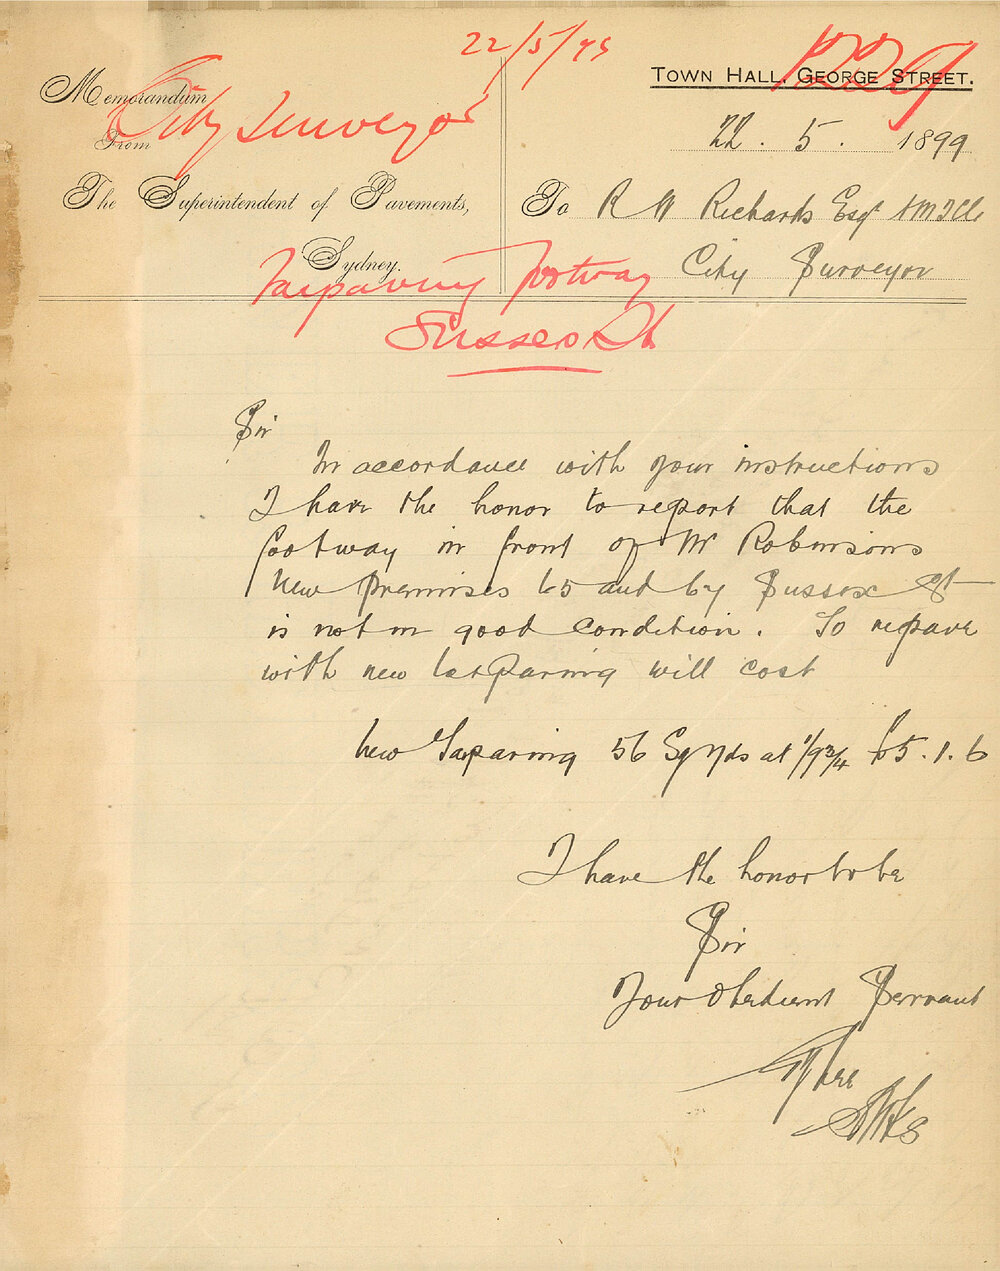 22/5/99
1229
Memorandum
From
City Surveyor
The Superintendent of Pavements,
Sydney.
Town Hall, George Street.
22. 5. 1899
To R W Richards Esqr AMICE
City Surveyor
Tarpaving footway
Sussex St
Sir
In accordance with your instructions
I have the honor to report that the
footway in front of Mr Robinsons
new premises 65 and 67 Sussex St
is not in good condition. To repave
with new tarpaving will cost
New Tarpaving 56 Sq Yds at 1/9 3/4 £5.1.6
I have the honor to be
Sir
Your Obedient Servant